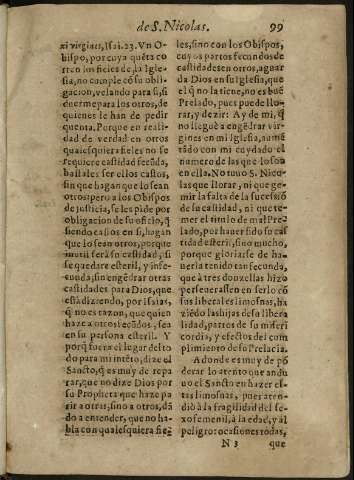 de S. Nicolas. 99
xi virgines, Isai. 23. Vn O-
bispo, por cuya quēta co-
rren los fieles de la Igle-
sia, no cumple cō su obli-
gacion, velando para si, si
duerme para los otros, de
quienes le han de pedir
quenta. Porque en reali-
dad de verdad en otros
qualesquiera fieles no se
requiere castidad fecūda,
bastales ser ellos castos,
sin que hagan que lo sean
otros: pero a los Obispos
de justicia, se les pide por
obligacion de su oficio, q̄
siendo castos en si, hagan
que lo sean otros, porque
inutil sera su castidad, si
se quedare esteril, y infe-
cunda, sin engēdrar otras
castidades para Dios, que
està dizendo, por Isaias,
q̄ no es razon, que quien
haze a otros fecūdos, sea
en su persona esteril. Y
porq̄ fuera el lugar de to-
do para mi intēto, dize el
Sancto, q̄ es muy de repa-
rar, que no dize Dios por
su Propheta que haze pa-
rir a otras, sino a otros, dā-
do a entender, que no ha-
bla con qualesquiera fie-
les, sino con los Obispos,
cuyos partos fecundos de
castidades en otros, aguar
da Dios en su Iglesia, que
el q̄ no la tiene, no es buē
Prelado, pues puede llo-
rar, y dezir: Ay de mi, q̄
no lleguè a engēdrar vir-
gines en mi Iglesia, aumē
tādo con mi cuydado el
numero de las que lo son
en ella. No tuuo S. Nico-
las que llorar, ni que ge-
mir la falta de la sucessiō
de su castidad, ni que te-
mer el titulo de mal Pre-
lado, por hauer sido su cas
tidad esteril, sino mucho,
porque gloriarse de ha-
uerla tenido tan fecunda,
que a tres donzellas hizo
perseuerassen en serlo cō
sus liberales limosnas, ha
ziēdo las hijas de su libera
lidad, partos de su miseri
cordia, y efectos del com
plimiento de su Prelacia.
A donde es muy de pō
derar lo atento que andu
uo el Sancto en hazer es-
tas limosnas, pues aten-
diò a la fragilidad del se-
xo femenil, à la edad, y al
peligro: ocasiones todas,
N 3 que